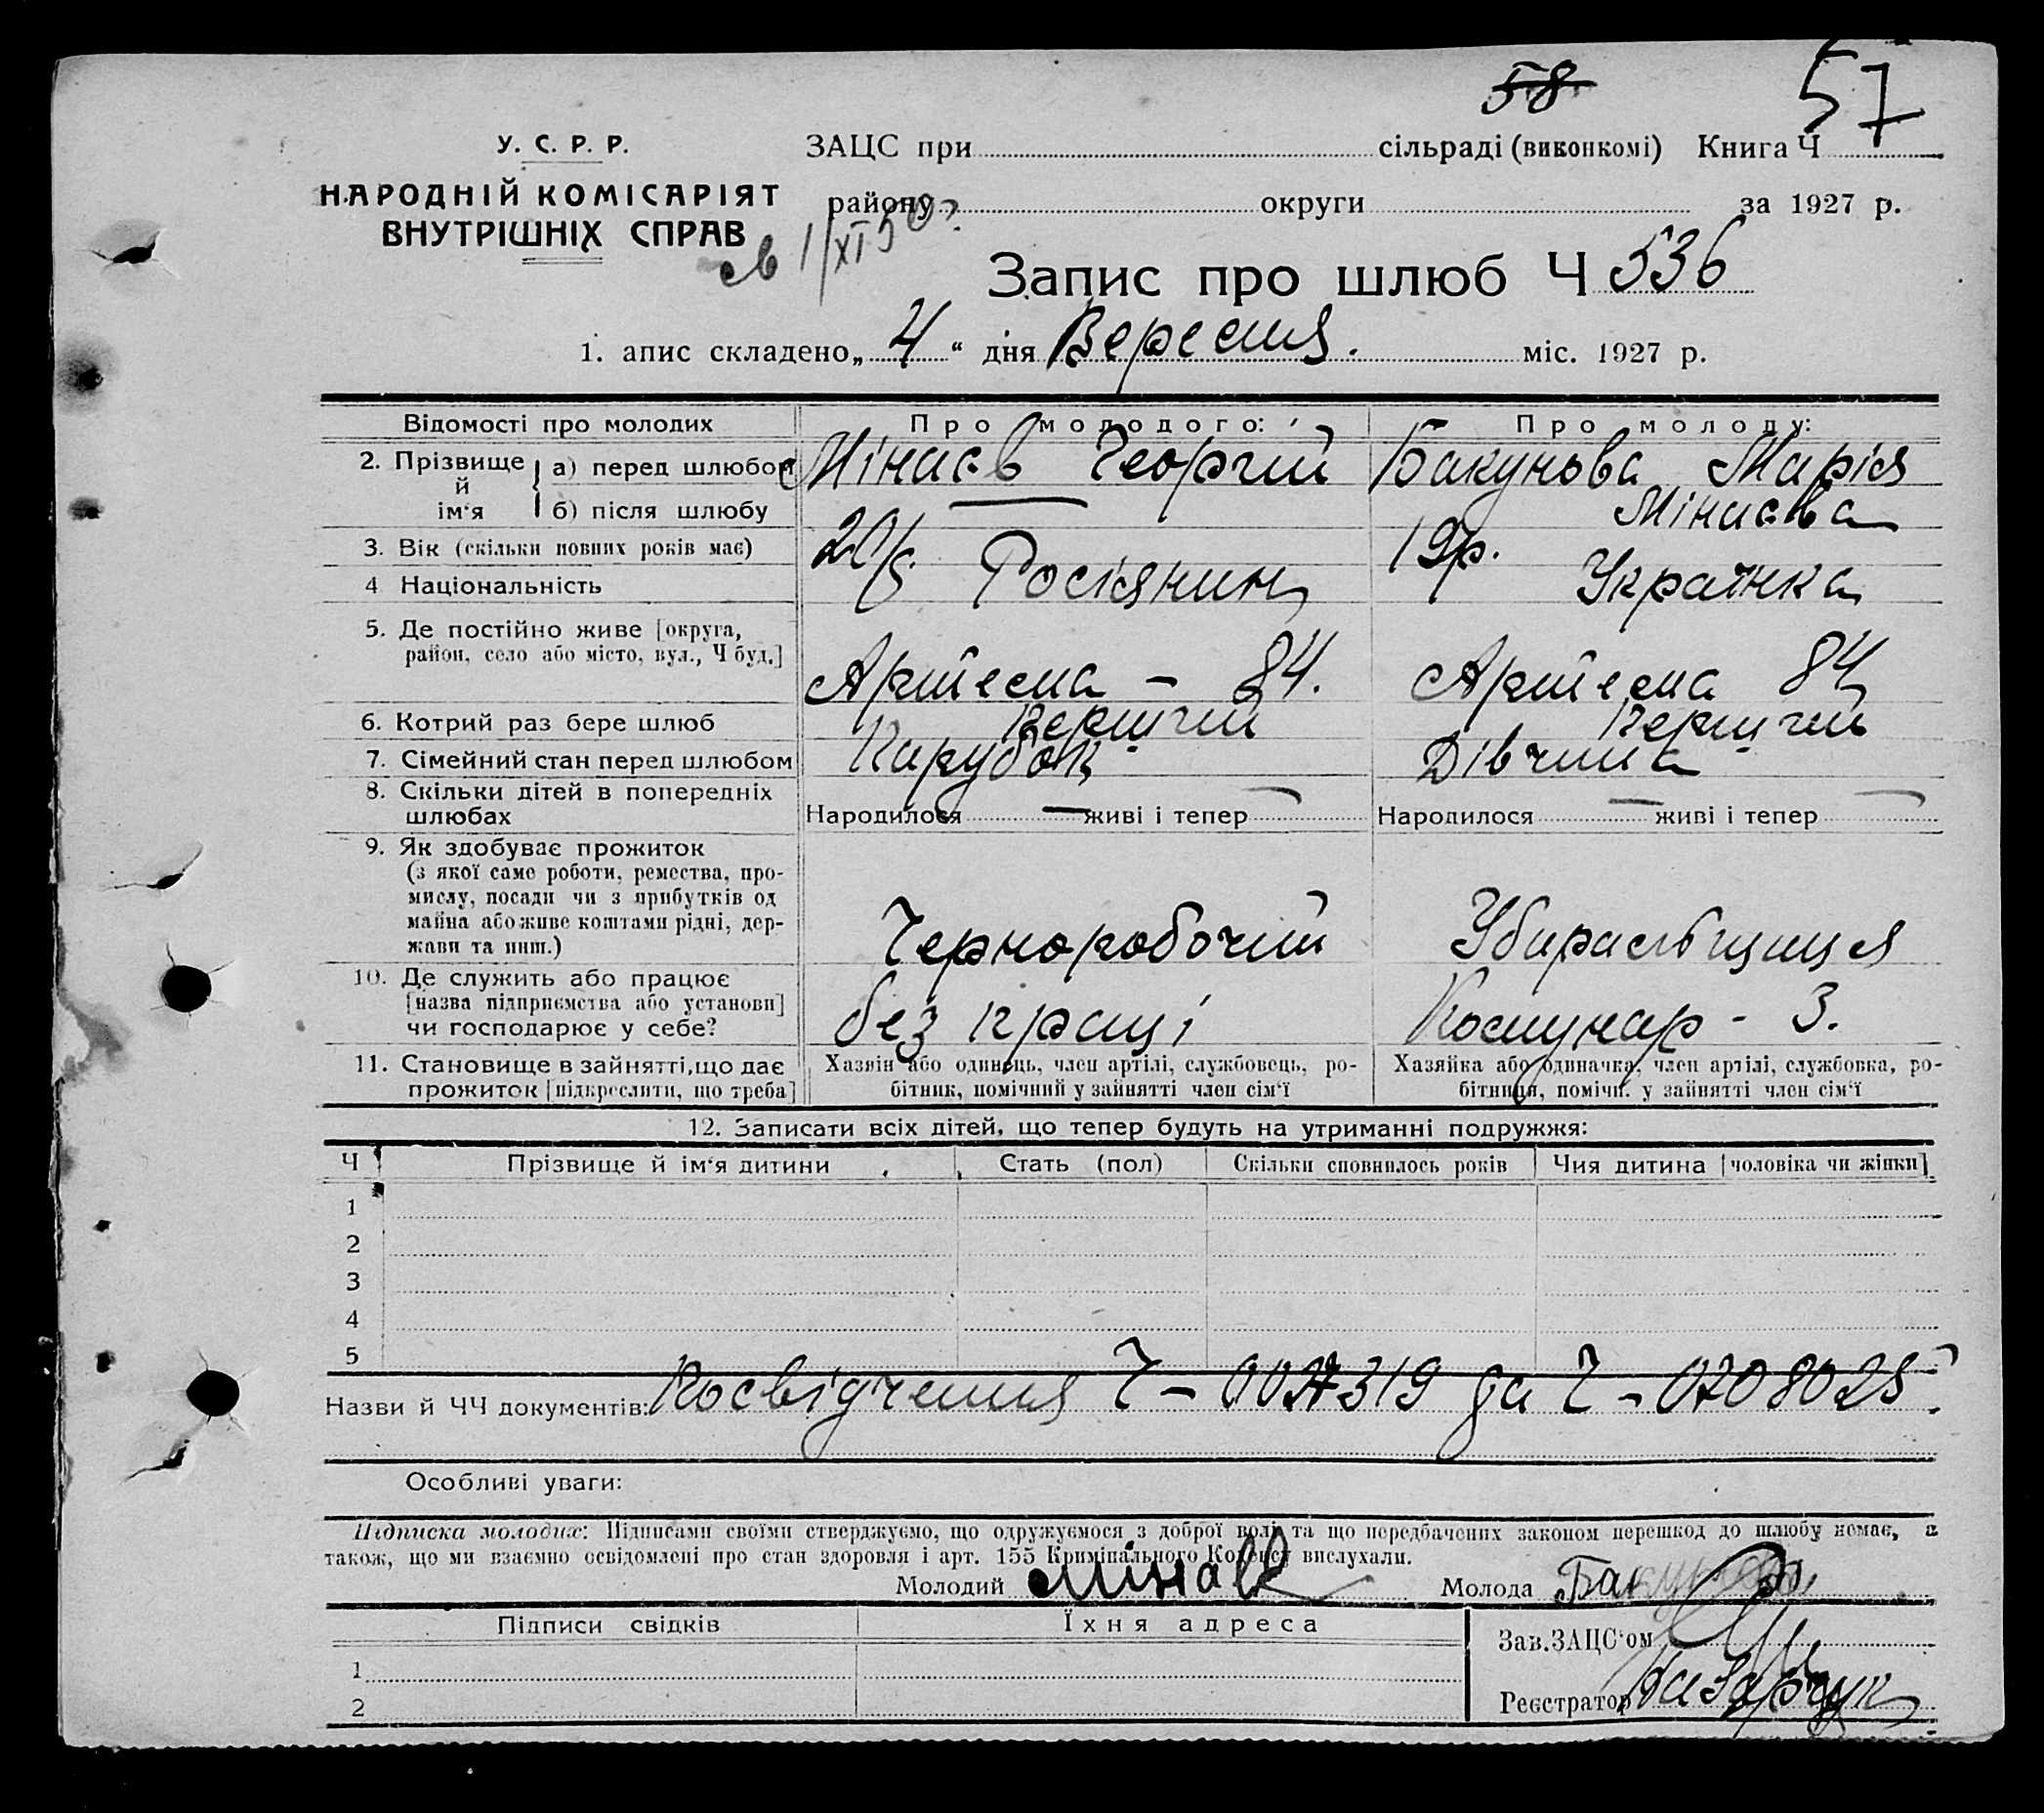 58 57
У. С. Р. Р. ЗАЦС при сільраді (виконкомі) Книга Ч
НАРОДНІЙ КОМІСАРІЯТ району округи за 1927 р.
ВНУТРІШНІХ СПРАВ
Запис про шлюб Ч 536
1. апис складено „ 4 “ дня Вересня. міс. 1927 р.
Відомості про молодих Про молодого: Про молоду:
2. Прізвище й ім‘я а) перед шлюбом Мінаєв Георгій Бакунова Марія
б) після шлюбу — Мінаєва
3. Вік (скільки повних років має) 20 19р.
4 Національність Росіянин Українка
5. Де постійно живе [округа,
район, село або місто, вул., Ч буд.] Артема - 84. Артема 84
6. Котрий раз бере шлюб Перший Перший
7. Сімейний стан перед шлюбом Парубок Дівчина
8. Скільки дітей в попередніх
шлюбах Народилося — живі і тепер — Народилося — живі і тепер —
9. Як здобуває прожиток
(з якої саме роботи, ремества, про-
мислу, посади чи з прибутків од
майна або живе коштами рідні, дер-
жави та инш.) Черноробочий Убиральщиця
10. Де служить або працює
[назва підприємства або установи]
чи господарює у себе? без праці Комунар - 3.
11. Становище в зайнятті, що дає Хазяін або одинець, член артілі, службовець, ро- Хазяйка або одиначка, член артілі, службовка, ро-
прожиток [підкреслити, що треба] бітник, помічний у зайнятті член сім‘ї бітниця, помічн. у зайнятті член сім‘ї
12. Записати всіх дітей, що тепер будуть на утриманні подружжя:
Ч Прізвище й ім‘я дитини Стать (пол) Скільки сповнилось років Чия дитина [чоловіка чи жінки]
1
2
3
4
5
Назви й ЧЧ документів: Посвідчення Ч - да Ч - 0708025
Особливі уваги:
Підписка молодих: Підписами своїми стверджуємо, що одружуємося з доброї волі та що передбачених законом перешкод до шлюбу немає, а
також, що ми взаємно освідомлені про стан здоровля і арт. 155 Кримінального Кодексу вислухали.
Молодий Мінаєв Молода
Підписи свідків Їхня адреса
Зав. ЗАЦС‘ом
1
Реєстратор Назарчук
2